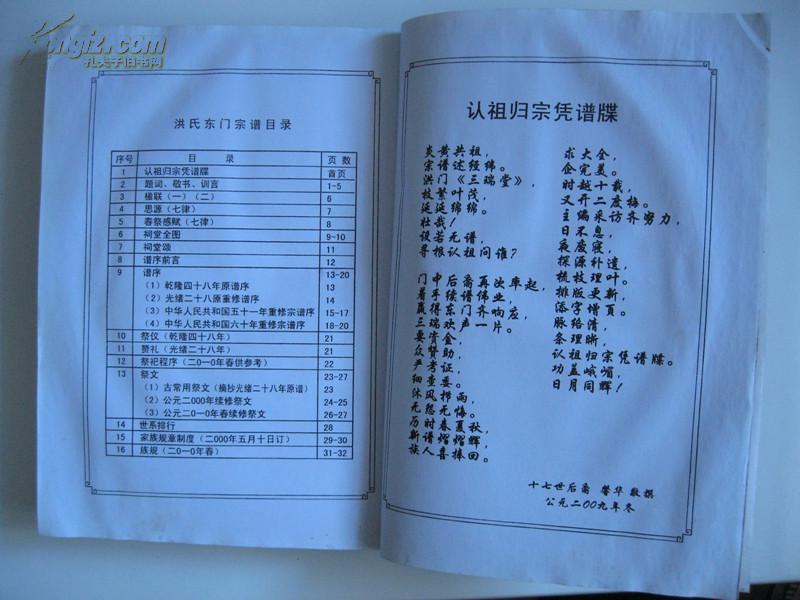 Kongfz.com
孔夫子旧书网
洪氏东门宗谱目录
序号 目 录 页 数
1 认祖归宗凭谱牒 首页
2 题词、敬书、训言 1-5
3 楹联（一）（二） 6
4 思源（七律） 7
5 春祭感赋（七律） 8
6 祠堂全图 9-10
7 祠堂颂 11
8 谱序前言 12
9 谱序 13-20
（1）乾隆四十八年原谱序 13
（2）光绪二十八原重修谱序 14
（3）中华人民共和国五十一年重修宗谱序 15-17
（4）中华人民共和国六十年重修宗谱序 18-20
10 祭仪（乾隆四十八年） 21
11 赞礼（光绪二十八年） 21
12 祭祀程序（二0一0年春供参考） 22
13 祭文 23-27
（1）古常用祭文（摘抄光绪二十八年原谱） 23
（2）公元二000年续修祭文 24-25
（3）公元二0一0年春续修祭文 26-27
14 世系排行 28
15 家族规章制度（二000年五月十日订） 29-30
16 族规（二0一0年春） 31-32
认祖归宗凭谱牒
炎黄共祖，
宗谱述经纬。
洪门《三瑞堂》，
枝繁叶茂，
延延绵绵。
壮哉！
设若无谱，
寻根认祖问谁？
门中后裔再次牵起，
着手续谱伟业，
赢得东门齐响应，
三瑞欢声一片。
要资金，
众赞助，
严考证，
细查委。
沐风栉雨，
无怨无悔。
历时春夏秋，
新谱熠熠辉，
族人喜捧回。
求大全，
企完美。
时越十载，
又开二度梅。
主编采访齐努力，
日不息，
夜废寝，
探源补遗，
梳枝理叶。
排版更新，
添字增页。
脉络清，
条理晰，
认祖归宗凭谱牒。
功盖峨嵋，
日月同辉！
十七世后裔 馨华 敬撰
公元二00九年冬